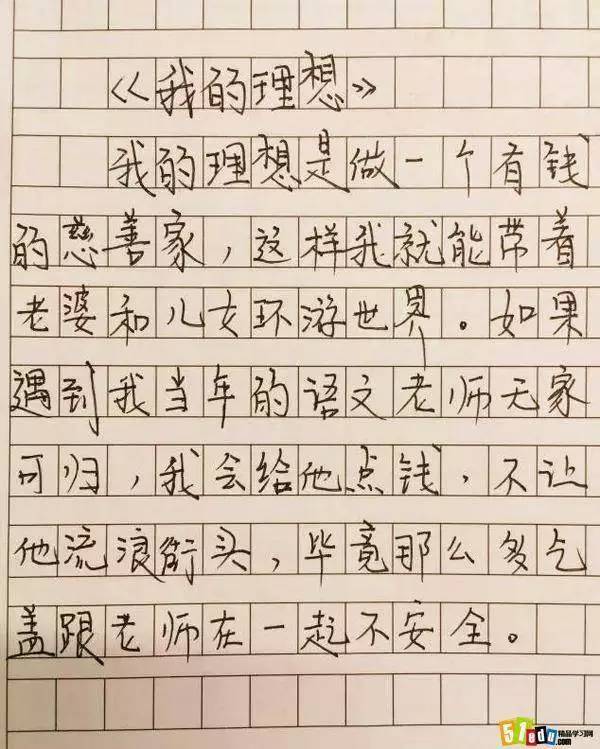 《我的理想》
我的理想是做一个有钱
的慈善家，这样我就能带着
老婆和儿女环游世界。如果
遇到我当年的语文老师无家
可归，我会给他点钱，不让
他流浪街头，毕竟那么多乞
盖跟老师在一起不安全。
51edu精品学习网
.com